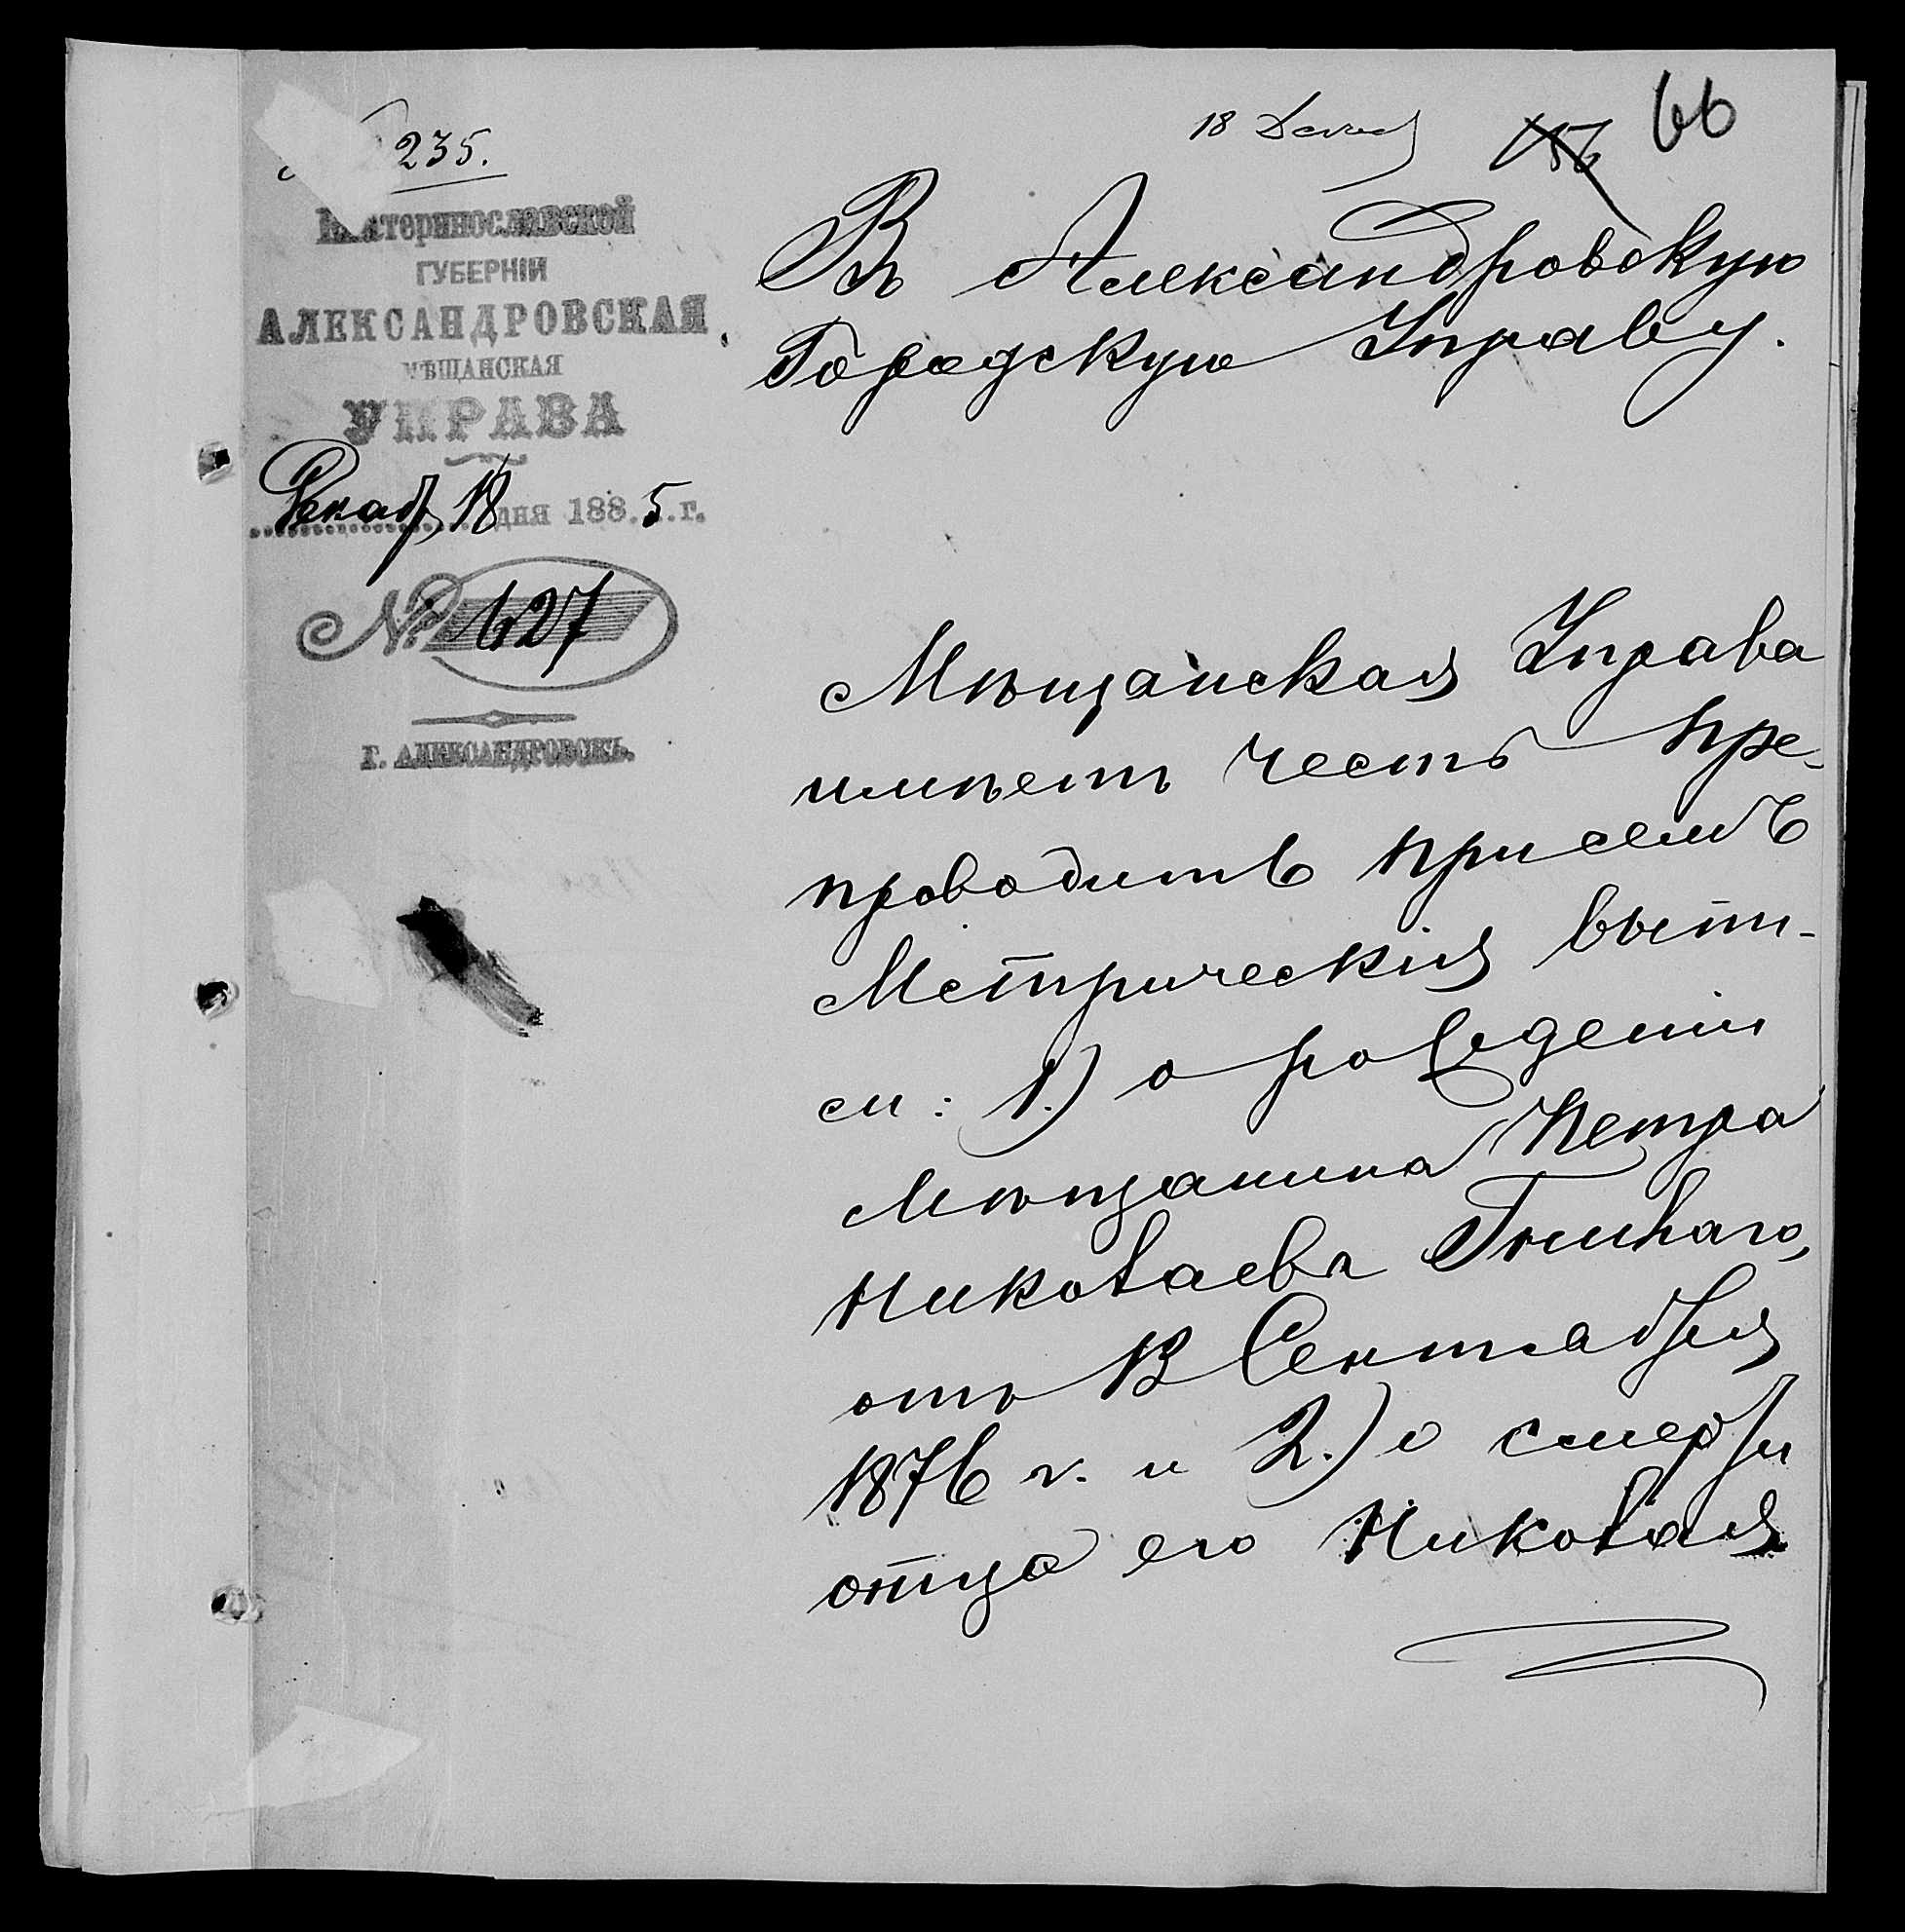 235.
18 Декаб
66
Екатеринославской
ГУБЕРНІИ
АЛЕКСАНДРОВСКАЯ
МѢЩАНСКАЯ
УПРАВА
Декаб, 18 дня 188.5.г.
№ 627
г. АЛЕКСАНДРОВСКЪ.
Въ Александровскую
Городскую Управу.
Мѣщанская Управа
имѣетъ честь пре-
проводить при семъ
Метрическія выпи-
си: 1.) о рождении
Мѣщанина Петра
Николаева
отъ 13 Сентября
1876 г. и 2.) о смерти
отца его Николая